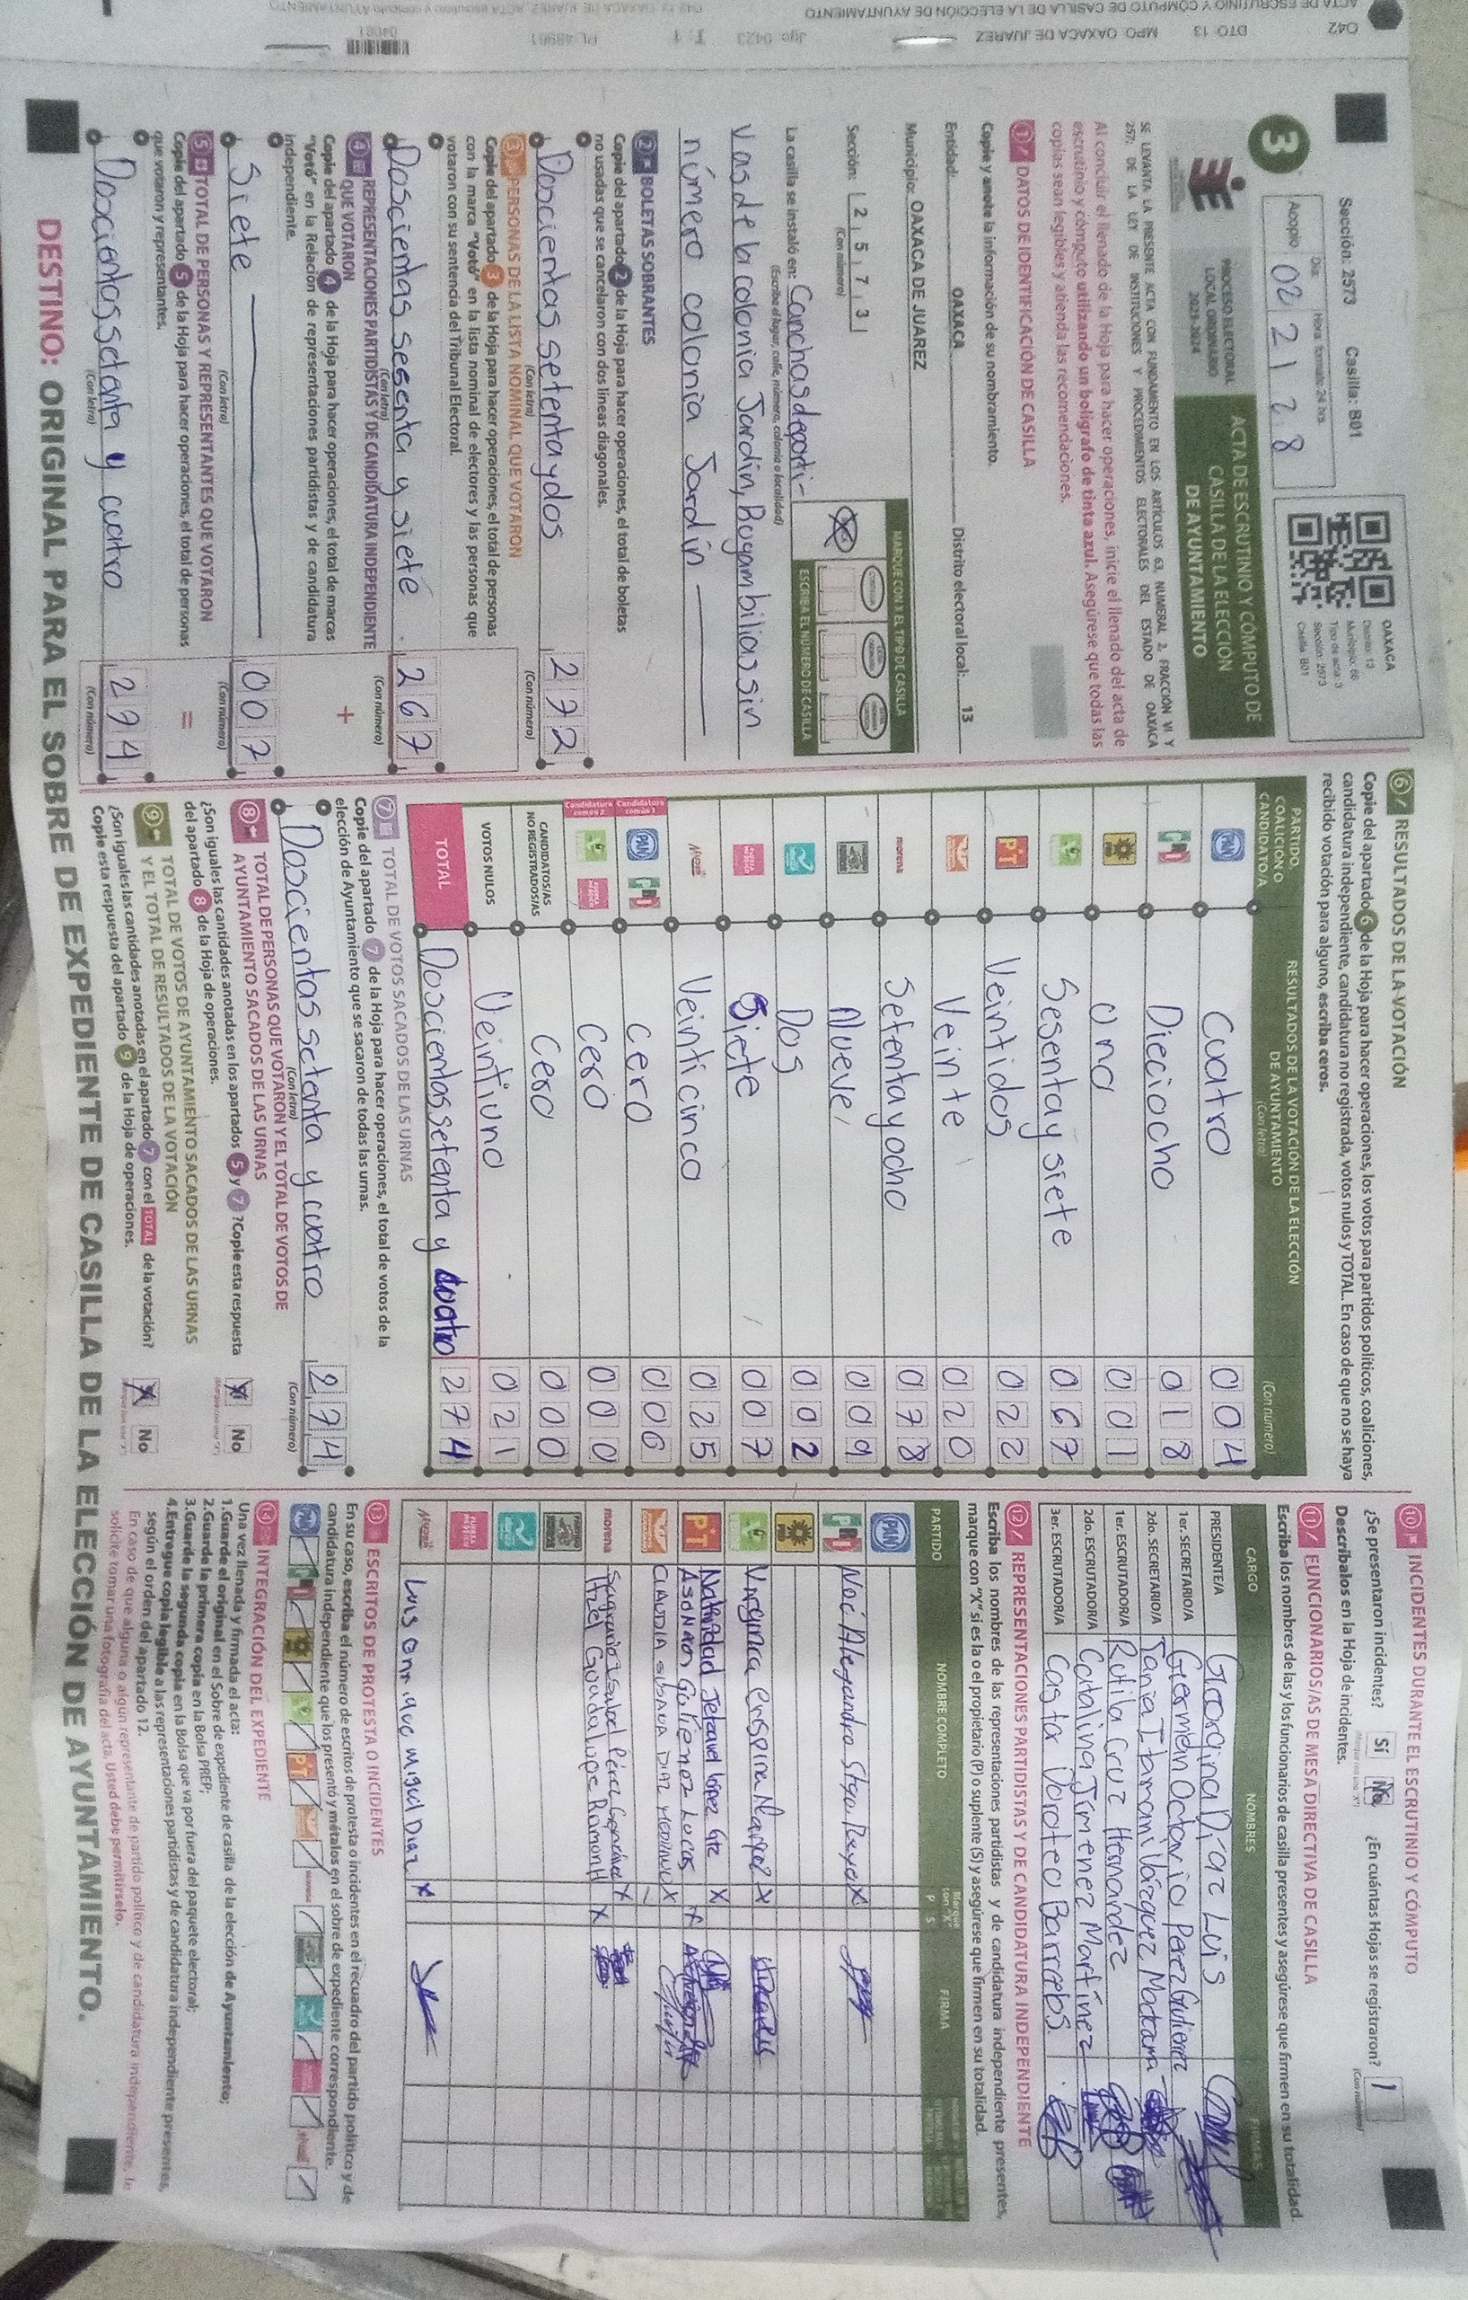 ACTA DE ESCRUTINIO Y CÓMPUTO DE CASILLA DE LA ELECCIÓN DE AYUNTAMIENTO
042 DTO 13 MPO OAXACA DE JUAREZ
Sección: 2573 Casilla: B01
3
Acopio
Día: Hora: formato 24 hrs.
02 21 28
OAXACA
Distrito: 13
Municipio: 66
Tipo de acta: 3
Sección: 2573
Casilla: B01
PROCESO ELECTORAL
LOCAL ORDINARIO
2023-2024
ACTA DE ESCRUTINIO Y CÓMPUTO DE
CASILLA DE LA ELECCIÓN
DE AYUNTAMIENTO
SE LEVANTA LA PRESENTE ACTA CON FUNDAMENTO EN LOS ARTÍCULOS 63, NUMERAL 2, FRACCIÓN VI Y
257; DE LA LEY DE INSTITUCIONES Y PROCEDIMIENTOS ELECTORALES DEL ESTADO DE OAXACA
Al concluir el llenado de la Hoja para hacer operaciones, inicie el llenado del acta de
escrutinio y cómputo utilizando un bolígrafo de tinta azul. Asegúrese que todas las
copias sean legibles y atienda las recomendaciones.
1 DATOS DE IDENTIFICACIÓN DE CASILLA
Copie y anote la información de su nombramiento.
Entidad: OAXACA Distrito electoral local: 13
Municipio: OAXACA DE JUAREZ
Sección: 2 5 7 3
(Con número)
MARQUE CON X EL TIPO DE CASILLA
ESCRIBA EL NÚMERO DE CASILLA
La casilla se instaló en: Canchas deporti-
(Escriba el lugar, calle, número, colonia o localidad)
vas de la colonia Jardín, Bugambilias sin
número colonia Jardín
2 BOLETAS SOBRANTES
Copie del apartado 2 de la Hoja para hacer operaciones, el total de boletas
no usadas que se cancelaron con dos líneas diagonales.
Doscientas setenta y dos 272
(Con letra) (Con número)
3 PERSONAS DE LA LISTA NOMINAL QUE VOTARON
Copie del apartado 3 de la Hoja para hacer operaciones, el total de personas
con la marca "Votó" en la lista nominal de electores y las personas que
votaron con su sentencia del Tribunal Electoral.
Doscientas sesenta y siete 267
(Con letra) (Con número)
4 REPRESENTACIONES PARTIDISTAS Y DE CANDIDATURA INDEPENDIENTE
QUE VOTARON
Copie del apartado 4 de la Hoja para hacer operaciones, el total de marcas
"Votó" en la Relación de representaciones partidistas y de candidatura
independiente.
+
Siete 007
(Con letra) (Con número)
5 TOTAL DE PERSONAS Y REPRESENTANTES QUE VOTARON
Copie del apartado 5 de la Hoja para hacer operaciones, el total de personas
que votaron y representantes.
=
Doscientas setenta y cuatro 274
(Con letra) (Con número)
6 RESULTADOS DE LA VOTACIÓN
Copie del apartado 6 de la Hoja para hacer operaciones, los votos para partidos políticos, coaliciones,
candidatura independiente, candidatura no registrada, votos nulos y TOTAL. En caso de que no se haya
recibido votación para alguno, escriba ceros.
PARTIDO, COALICIÓN O CANDIDATO/A
RESULTADOS DE LA VOTACIÓN DE LA ELECCIÓN DE AYUNTAMIENTO
(Con letra) (Con número)
PAN Cuatro 004
PRI Dieciocho 018
Uno 001
Sesenta y siete 067
PT Veintidos 022
Veinte 020
morena Setenta y ocho 078
Nueve 009
Dos 002
Siete 007
Veinticinco 025
Candidatura común 1 PAN PRI cero 006
Candidatura común 2 Cero 000
CANDIDATOS/AS NO REGISTRADOS/AS Cero 000
VOTOS NULOS Veintiuno 021
TOTAL Doscientos setenta y cuatro 274
7 TOTAL DE VOTOS SACADOS DE LAS URNAS
Copie del apartado 7 de la Hoja para hacer operaciones, el total de votos de la
elección de Ayuntamiento que se sacaron de todas las urnas.
Doscientas setenta y cuatro 274
(Con letra) (Con número)
8 TOTAL DE PERSONAS QUE VOTARON Y EL TOTAL DE VOTOS DE
AYUNTAMIENTO SACADOS DE LAS URNAS
¿Son iguales las cantidades anotadas en los apartados 5 y 7 ? Copie esta respuesta
del apartado 8 de la Hoja de operaciones.
Sí No
9 TOTAL DE VOTOS DE AYUNTAMIENTO SACADOS DE LAS URNAS
Y EL TOTAL DE RESULTADOS DE LA VOTACIÓN
¿Son iguales las cantidades anotadas en el apartado 7 con el TOTAL de la votación?
Copie esta respuesta del apartado 9 de la Hoja de operaciones.
Sí No
10 INCIDENTES DURANTE EL ESCRUTINIO Y CÓMPUTO
¿Se presentaron incidentes? Sí No ¿En cuántas Hojas se registraron? 1
Descríbalos en la Hoja de incidentes.
11 FUNCIONARIOS/AS DE MESA DIRECTIVA DE CASILLA
Escriba los nombres de las y los funcionarios de casilla presentes y asegúrese que firmen en su totalidad.
CARGO NOMBRES FIRMAS
PRESIDENTE/A Georgina Díaz Luis
1er. SECRETARIO/A Germán Octavio Perez Gutierrez
2do. SECRETARIO/A Tania Itamani Vázquez
1er. ESCRUTADOR/A Rutila Cruz Hernandez
2do. ESCRUTADOR/A Catalina Jimenez Martínez
3er. ESCRUTADOR/A Castor Doroteo
12 REPRESENTACIONES PARTIDISTAS Y DE CANDIDATURA INDEPENDIENTE
Escriba los nombres de las representaciones partidistas y de candidatura independiente presentes,
marque con "X" si es la o el propietario (P) o suplente (S) y asegúrese que firmen en su totalidad.
PARTIDO NOMBRE COMPLETO P S FIRMA
PAN
PRI Noé Alejandro Reyes X
Virginia Crispina X
PT Natividad López X
X
CLAUDIA DIAZ X
morena Isabel Pérez X
Itzel Guadalupe Ramon H X
Luis Enrique Misael Diaz X
13 ESCRITOS DE PROTESTA O INCIDENTES
En su caso, escriba el número de escritos de protesta o incidentes en el recuadro del partido político y de
candidatura independiente que los presentó y métalos en el sobre de expediente correspondiente.
14 INTEGRACIÓN DEL EXPEDIENTE
Una vez llenada y firmada el acta:
1.Guarde el original en el Sobre de expediente de casilla de la elección de Ayuntamiento;
2.Guarde la primera copia en la Bolsa PREP;
3.Guarde la segunda copia en la Bolsa que va por fuera del paquete electoral;
4.Entregue copia legible a las representaciones partidistas y de candidatura independiente presentes,
según el orden del apartado 12.
En caso de que alguna o algún representante de partido político y de candidatura independiente, le
solicite tomar una fotografía del acta, Usted debe permitírselo.
DESTINO: ORIGINAL PARA EL SOBRE DE EXPEDIENTE DE CASILLA DE LA ELECCIÓN DE AYUNTAMIENTO.